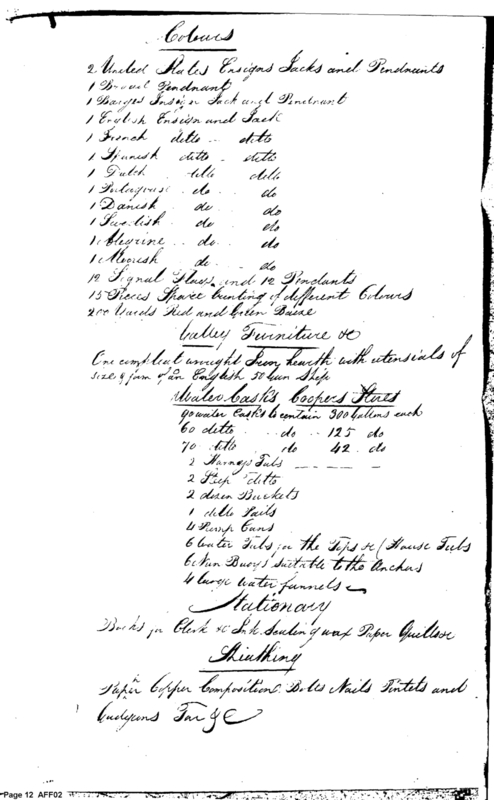 Colours
2 United States Ensigns Jacks and Pendnants
1 Broad Pendnant
1 Barges Insign Jack and Pendnant
1 English Ensign and Jack
1 French ditto .. ditto
1 Spanish ditto - ditto
1 Dutch ditto ditto
1 Portuguese . do . do
1 Danish . do .. do
1 Swedish . do . do
1 Algerine .. do .. do
1 Moorish do .. do
12 Signal Flags and 12 Pendants
15 Peces Sparce bunting of different Colours
200 Yards Red and Green Baize
Galley Furniture &c
One compleat wrought Iron hearth with utensials of
size & form of an English 50 Gun Ship
Water Casks Coopers Stores
90 water Casks to contain 300 Gallons each
60 ditto . . do .. 125 do
70 ditto do . 42 . do
2 Harness Tubs
2 Steep ditto
2 dozen Buckets
1 ditto Pails
4 Pump Cans
6 Water Tubs for the Tops &c / House Tubs
6 Nun Buoys suitable to the Anchors
4 large water funnels
Stationary
Books for Clerk &c Ink Sealing wax Paper Quills &c
Sheathing
Paper Copper Composition Bolts Nails Pintels and
Gudgeons Tar &C
Page 12 AFF02